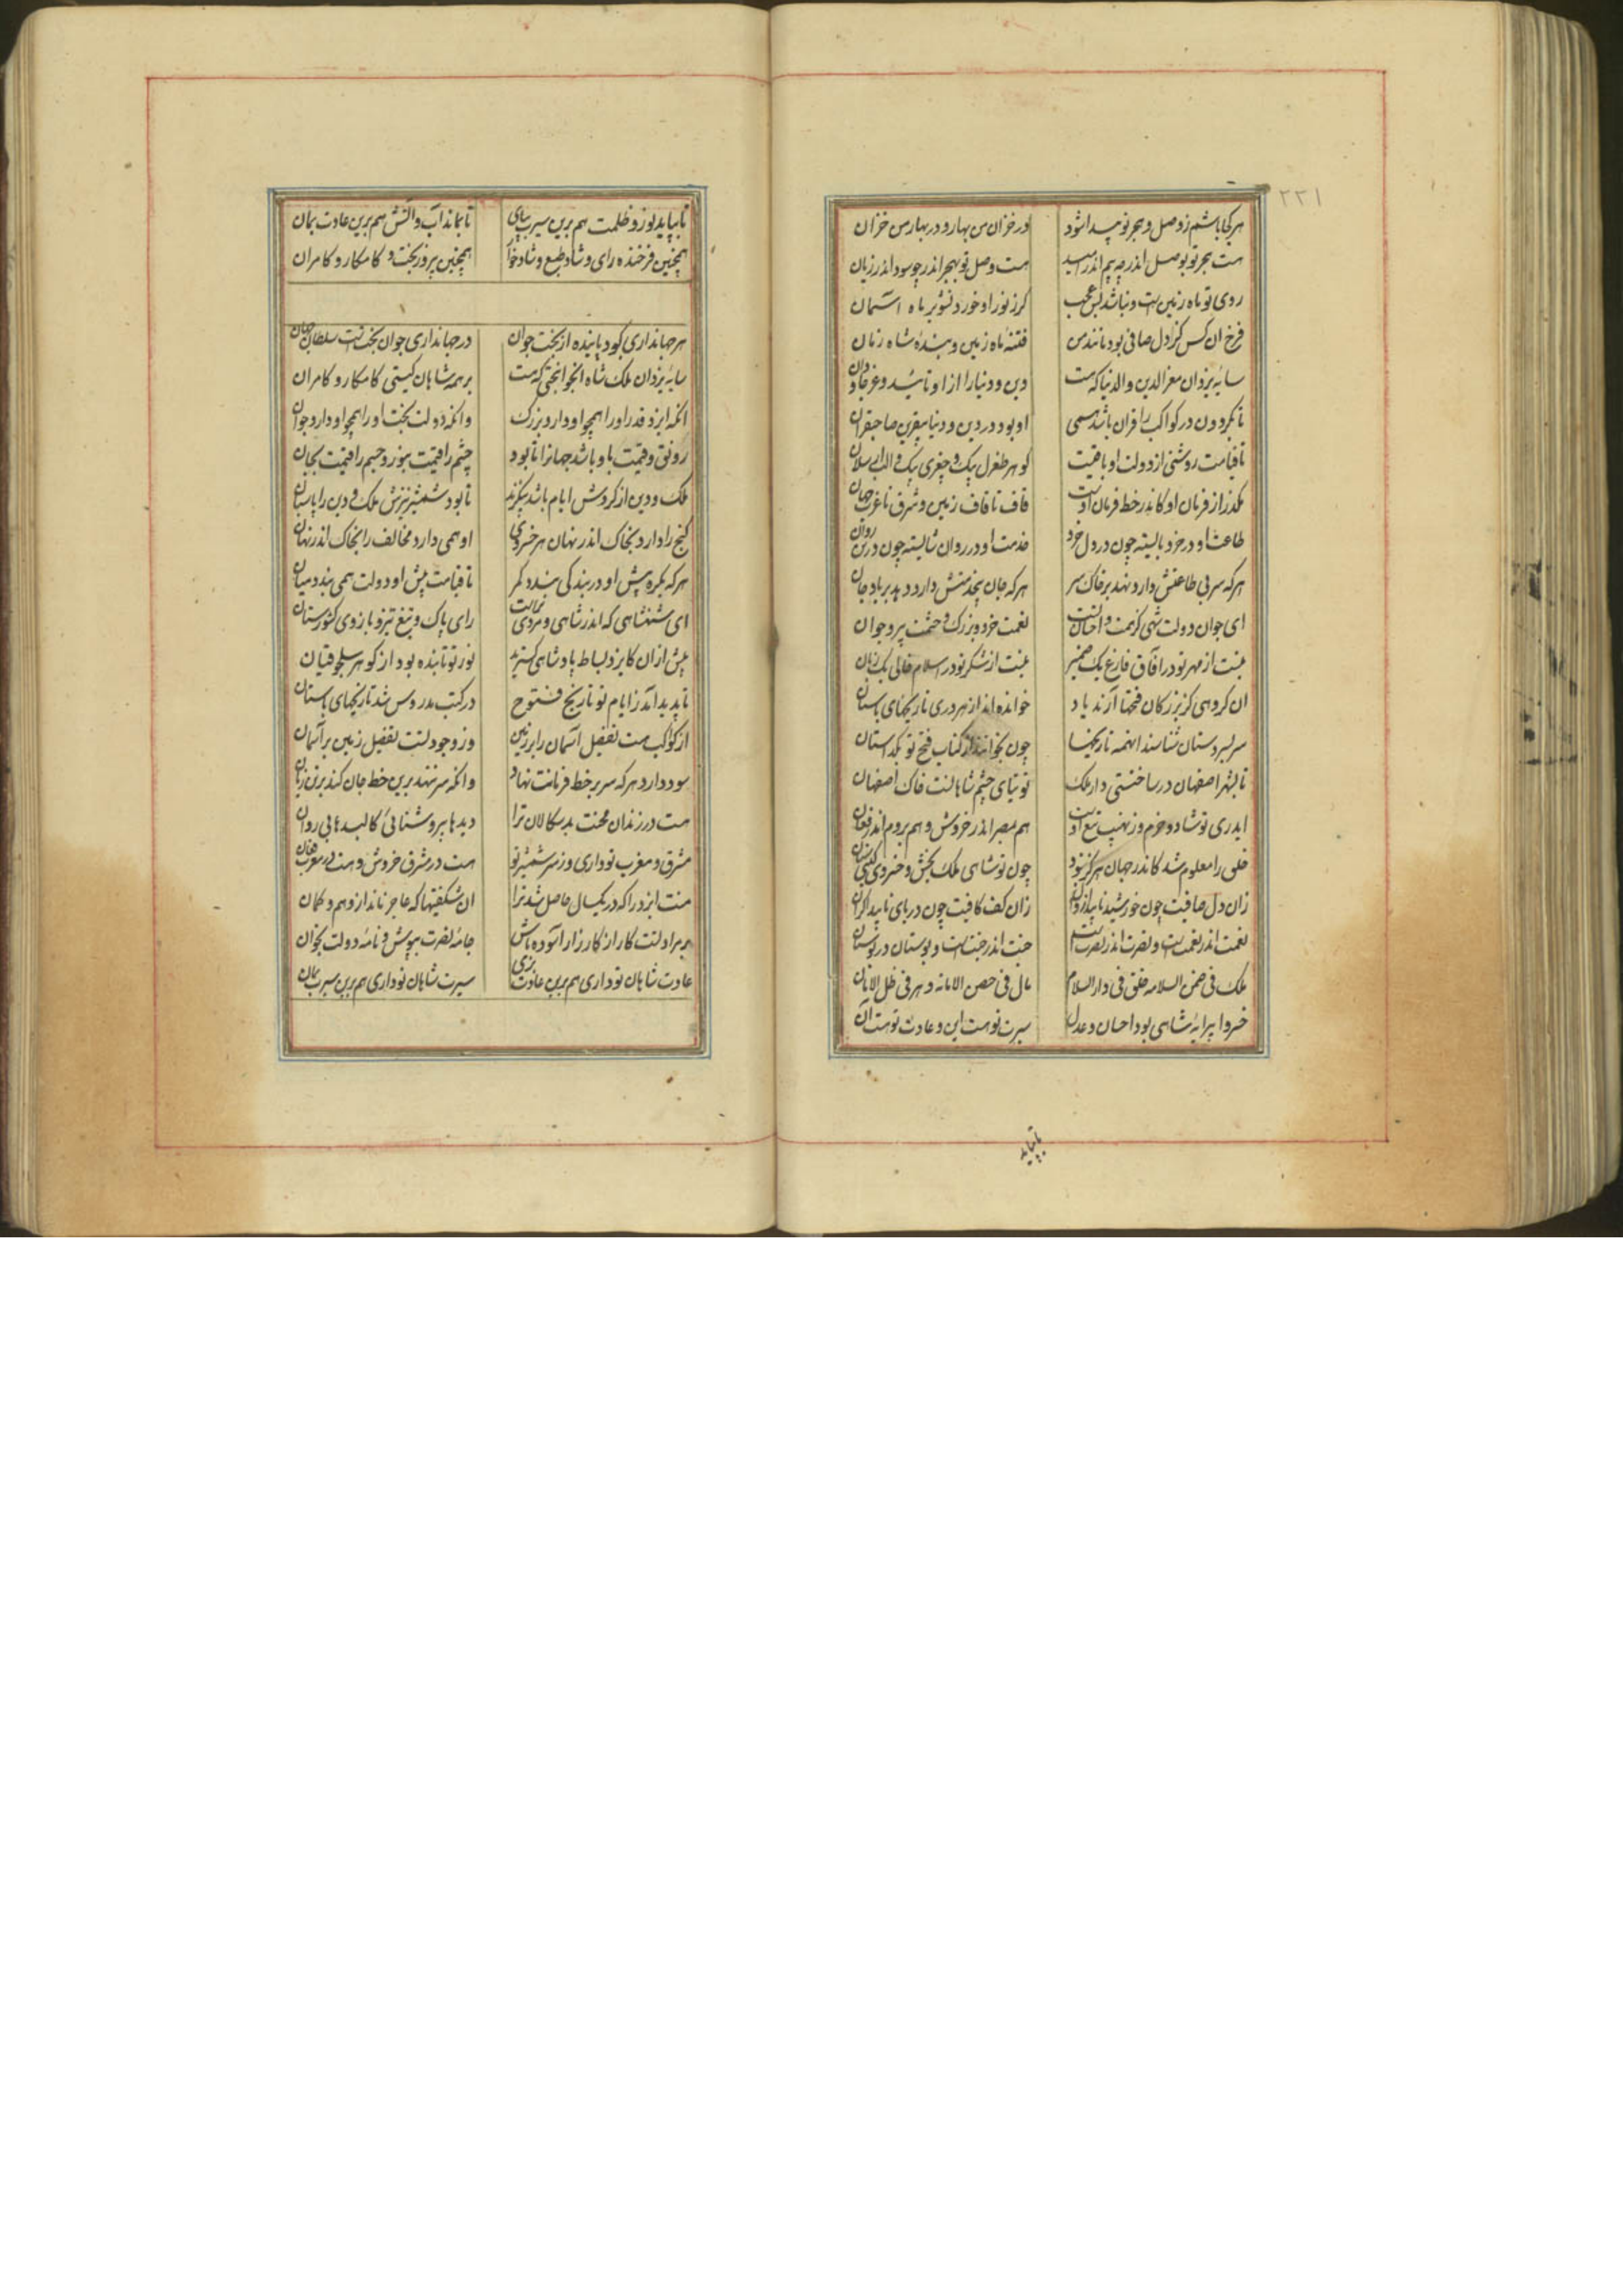 ۲۲۱
هر کجا باشم ز وصل و هجر تو پیدا شود در خزان من بهار و در بهار من خزان
هست هجر تو بوصل اندر چو بیم اندر امید هست وصل تو بهجر اندر چو سود اندر زیان
روی تو ماه زمین است و نباشد بس عجب گر ز نور او خورد تشویر ماه آسمان
فرخ آن کس کز دل صافی بود مانند من فتنهٔ ماه زمین و بندهٔ شاه زمان
سایهٔ یزدان معز الدین و الدنیا که هست دین و دنیا را از او تائید و عز جاودان
تا بگردون در کواکب را قران باشد همی او بود در دین و دنیا بیقرین صاحبقران
تا قیامت روشنی از دولت او یافت گوهر طغرل بیک و چغری بیک و الب ارسلان
مگذر از فرمان او کاندر خط فرمان اوست قاف تا قاف زمین و شرق تا غرب جهان
طاعت او در خرد بایسته چون در دل خرد خدمت او در روان شایسته چون در تن روان
هر که سر بی طاعتش دارد نهد بر خاک سر هر که جان بیخدمتش دارد دهد بر باد جان
ای جوان دولت شهی کز همت و احسان تست نعمت خرد و بزرگ و حشمت پیر و جوان
نیست از مهر تو در آفاق فارغ یک ضمیر نیست از شکر تو در اسلام خالی یک زبان
آن گروهی کز بزرگان فتحها آرند یاد خوانده‌اند از هر دری تاریخهای باستان
سربسر دستان شناسند آنهمه تاریخها چون بخوانند از کتاب فتح تو یک داستان
تا بشهر اصفهان در ساختستی دار ملک توتیای چشم شاهانست خاک اصفهان
ایدری تو شاد و خرم وز نهیب تیغ اوست هم بمصر اندر خروش و هم بروم اندر فغان
خلق را معلوم شد کاندر جهان هرگز نبود چون تو شاهی ملک بخش و خسروی گیتی ستان
زان دل صافیت چون خورشید تابید از زوال زان کف کافیت چون دریای ناپیدا کران
نعمت اندر نعمتست و نصرت اندر نصرتست جنت اندر جنتست و بوستان در بوستان
ملک فی ضمن السلامه خلق فی دار السلام مال فی حصن الامانه دهر فی ظل الامان
خسروا پیرایهٔ شاهی بود احسان و عدل سیرت تو هست این و عادت تو هست آن
تا بپاید
تا بپاید نور و ظلمت هم برین سیرت بپای تا بماند آب و آتش هم برین عادت بمان
همچنین فرخنده رای و شاد طبع و شادخوار همچنین پیروز بخت و کامکار و کامران
هر جهانداری کو دپاینده از بخت جوان در جهانداری جوان بختست سلطان جهان
سایهٔ یزدان ملک شاه آنجوانبختی که هست بر همه شاهان گیتی کامکار و کامران
آنکه ایزد قدر او را همچو او دارد بزرگ وانکه دولت بخت او را همچو او دارد جوان
رونق و قیمت باو باشد جهانرا تا بود چشم را قیمت بنور و جسم را قیمت بجان
ملک و دین از گردش ایام باشد بیگزند تا بود شمشیر تیزش ملک و دین را پاسبان
گنج را دارد بخاک اندر نهان هر خسروی او همی دارد مخالف را بخاک اندر نهان
هر که یکره پیش او در بندگی بندد کمر تا قیامت پیش او دولت همی بندد میان
ای شهنشاهی که اندر شاهی و مردی تراست رای پاک و تیغ تیز و بازوی کشورستان
پیش از آن کایزد بساط پادشاهی گسترید نور تو تابنده بود از گوهر سلجوقیان
تا پدید آمد ز ایام تو تاریخ فتوح در کتب مدروس شد تاریخهای باستان
از کواکب هست تفضیل آسمان را بر زمین وز وجود تست تفضیل زمین بر آسمان
سود دارد هر که سر بر خط فرمانت نهاد وانکه سر ننهد برین خط جان کند بر تن زیان
هست در زندان محنت بدسگالان ترا دیدها بی روشنائی کالبدها بی روان
مشرق و مغرب تو داری وز سر شمشیر تو هست در مشرق خروش و هست در مغرب فغان
منت ایزد را که در یکسال حاصل شد ترا آن شگفتیها که عاجز ماند از و وهم و گمان
بر مراد تست کار از کارزار آسوده باش جامهٔ نصرت بپوش و نامهٔ دولت بخوان
عادت شاهان تو داری هم برین عادت بزی سیرت شاهان تو داری هم برین سیرت بمان